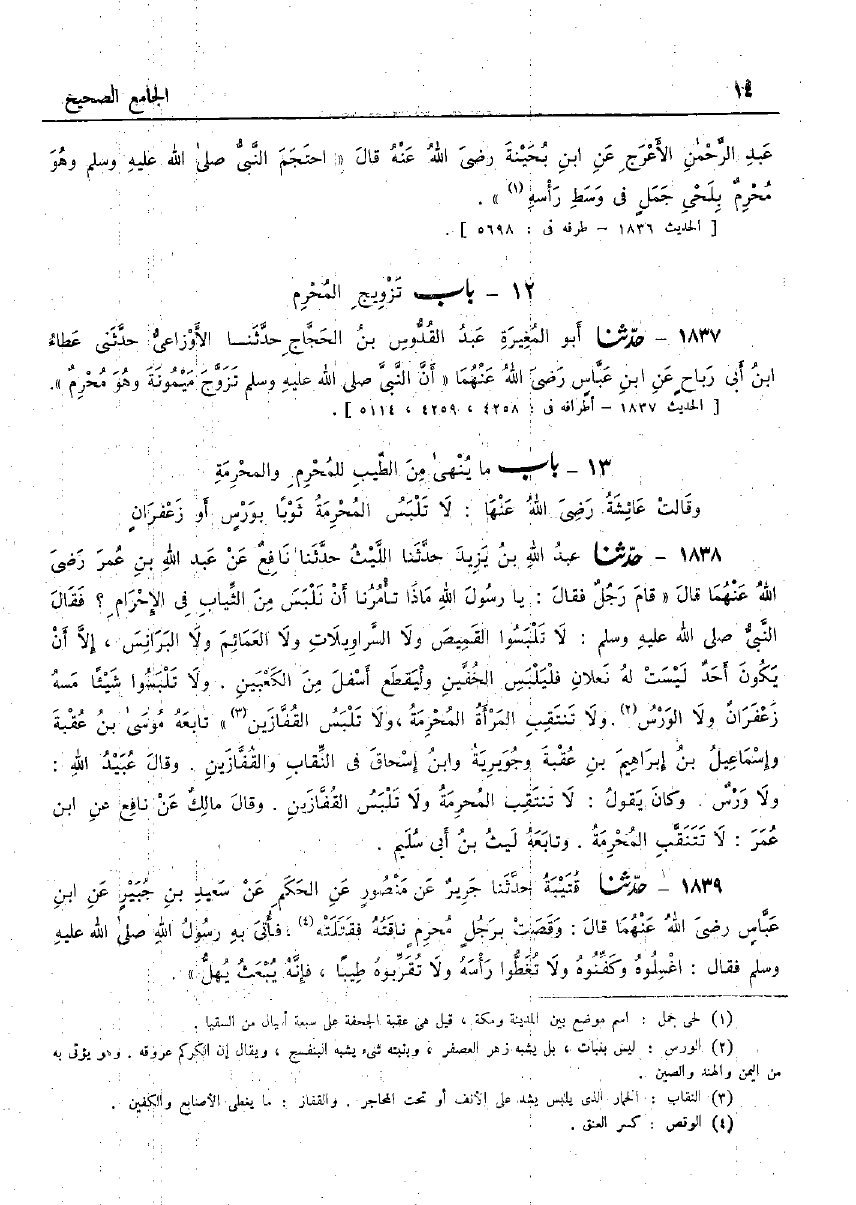 ١٤
الجامع الصحيح
عَبدِ الرَّحْمٰنِ الأَعْرَجِ عَنِ ابنِ بُحَيْنَةَ رضىَ اللهُ عَنْهُ قالَ « احتَجَمَ النَّبىُّ صلىٰ الله عليهِ وسلم وهُوَ
مُحْرِمٌ بِلَحْىِ جَمَلٍ فى وَسَطِ رَأْسهِ (١) » .
[ الحديث ١٨٣٦ – طرفه فى : ٥٦٩٨ ] .
١٢ – باب تَزْوِيجِ المُحْرِمِ
١٨٣٧ – حدّثنا أَبو المُغِيرَةِ عَبدُ القُدُّوسِ بنُ الحَجَّاجِ حدَّثَنا الأَوْزاعىُّ حدَّثَنى عَطاءُ
ابنُ أَبى رَباحٍ عَنِ ابنِ عَبَّاسٍ رَضىَ اللهُ عَنْهُمَا « أَنَّ النَّبىَّ صلى الله عليهِ وسلم تَزَوَّجَ مَيْمُونَةَ وهُوَ مُحْرِمٌ » .
[ الحديث ١٨٣٧ – أطرافه فى : ٤٢٥٨ ، ٤٢٥٩ ، ٥١١٤ ] .
١٣ – باب ما يُنْهىٰ مِنَ الطِّيبِ للمُحْرِمِ والمحْرِمَةِ
وقَالتْ عَائِشَةُ رَضِىَ اللهُ عَنْهَا : لَا تَلْبَسُ المُحْرِمَةُ ثَوْبًا بوَرْسٍ أَو زَعْفرَانٍ
١٨٣٨ – حدّثنا عبدُ اللهِ بنُ يَزِيدَ حدَّثَنا اللَّيْثُ حدَّثَنا نَافِعٌ عَنْ عَبد اللهِ بنِ عُمرَ رَضىَ
اللهُ عَنْهُمَا قالَ « قامَ رَجُلٌ فقالَ : يا رسُولَ اللهِ مَاذَا تأْمُرُنا أَنْ نَلْبَسَ مِنَ الثِّيابِ فى الإِحْرَامِ ؟ فَقَالَ
النَّبىُّ صلى الله عليهِ وسلم : لَا تَلْبَسُوا القَمِيصَ ولَا السَّراوِيلَاتِ ولَا العَمَائِمَ ولَا البَرَانِسَ ، إِلَّا أَنْ
يَكُونَ أَحَدٌ لَيْسَتْ لهُ نَعلانِ فلْيَلْبَسِ الخُفَّينِ ولْيَقطَع أَسْفلَ مِنَ الكَعْبَينِ . ولَا تَلْبَسُوا شَيْئًا مَسهُ
زَعْفَرَانٌ ولَا الوَرْسُ (٢) . ولَا تَنتَقِبِ المَرْأَةُ المُحْرِمَةُ ، ولَا تَلْبَسِ القُفَّازَينِ (٣) » تابعَهُ مُوسَىٰ بنُ عُقْبةَ
وإِسْمَاعيلُ بنُ إِبراهِيمَ بنِ عُقْبةَ وجُوَيرِيَةُ وابنُ إِسْحاقَ فى النِّقابِ والقُفَّازَينِ . وقالَ عُبَيْدُ اللهِ :
ولَا وَرْسٌ . وكَانَ يَقولُ : لَا تنتَقِبِ المُحرِمةُ ولَا تَلْبَسُ القُفَّازَينِ . وقالَ مالِكٌ عَنْ نافِع عنِ ابنِ
عُمَرَ : لَا تَتَنَقَّبِ المُحْرِمَةُ . وتابَعَهُ لَيثُ بنُ أَبى سُلَيمٍ .
١٨٣٩ – حدّثنا قُتَيْبَةُ حدَّثَنا جَرِيرٌ عَن مَنْصُورٍ عَنِ الحَكَمِ عَنْ سَعيدِ بنِ جُبَيْرٍ عَنِ ابنِ
عَبَّاسٍ رضىَ اللهُ عَنْهُمَا قالَ : وَقَصَتْ بِرَجُلٍ مُحْرِمٍ ناقَتُهُ فقَتَلَتْه (٤) ، فأُتىَ بهِ رسُولُ اللهِ صلىٰ الله عليهِ
وسلم فقال : اغْسِلُوهُ وكَفِّنُوهُ ولَا تُغَطُّوا رَأْسَهُ ولَا تُقَرِّبوهُ طِيبًا ، فإِنَّهُ يُبْعَثُ يُهلُّ » .
(١) لحى جمل : اسم موضع بين المدينة ومكة ، قيل هى عقبة الجحفة على سبعة أميال من السقيا .
(٢) الورس : ليس بنبات ، بل يشبه زهر العصفر ، ونبته شىء يشبه البنفسج ، ويقال إن الكركم عروقه . وهو يؤتى به
من اليمن والهند والصين .
(٣) النقاب : الخمار الذى يلبس يشد على الأنف أو تحت المحاجر . والقفاز : ما يغطى الأصابع والكفين .
(٤) الوقص : كسر العنق .